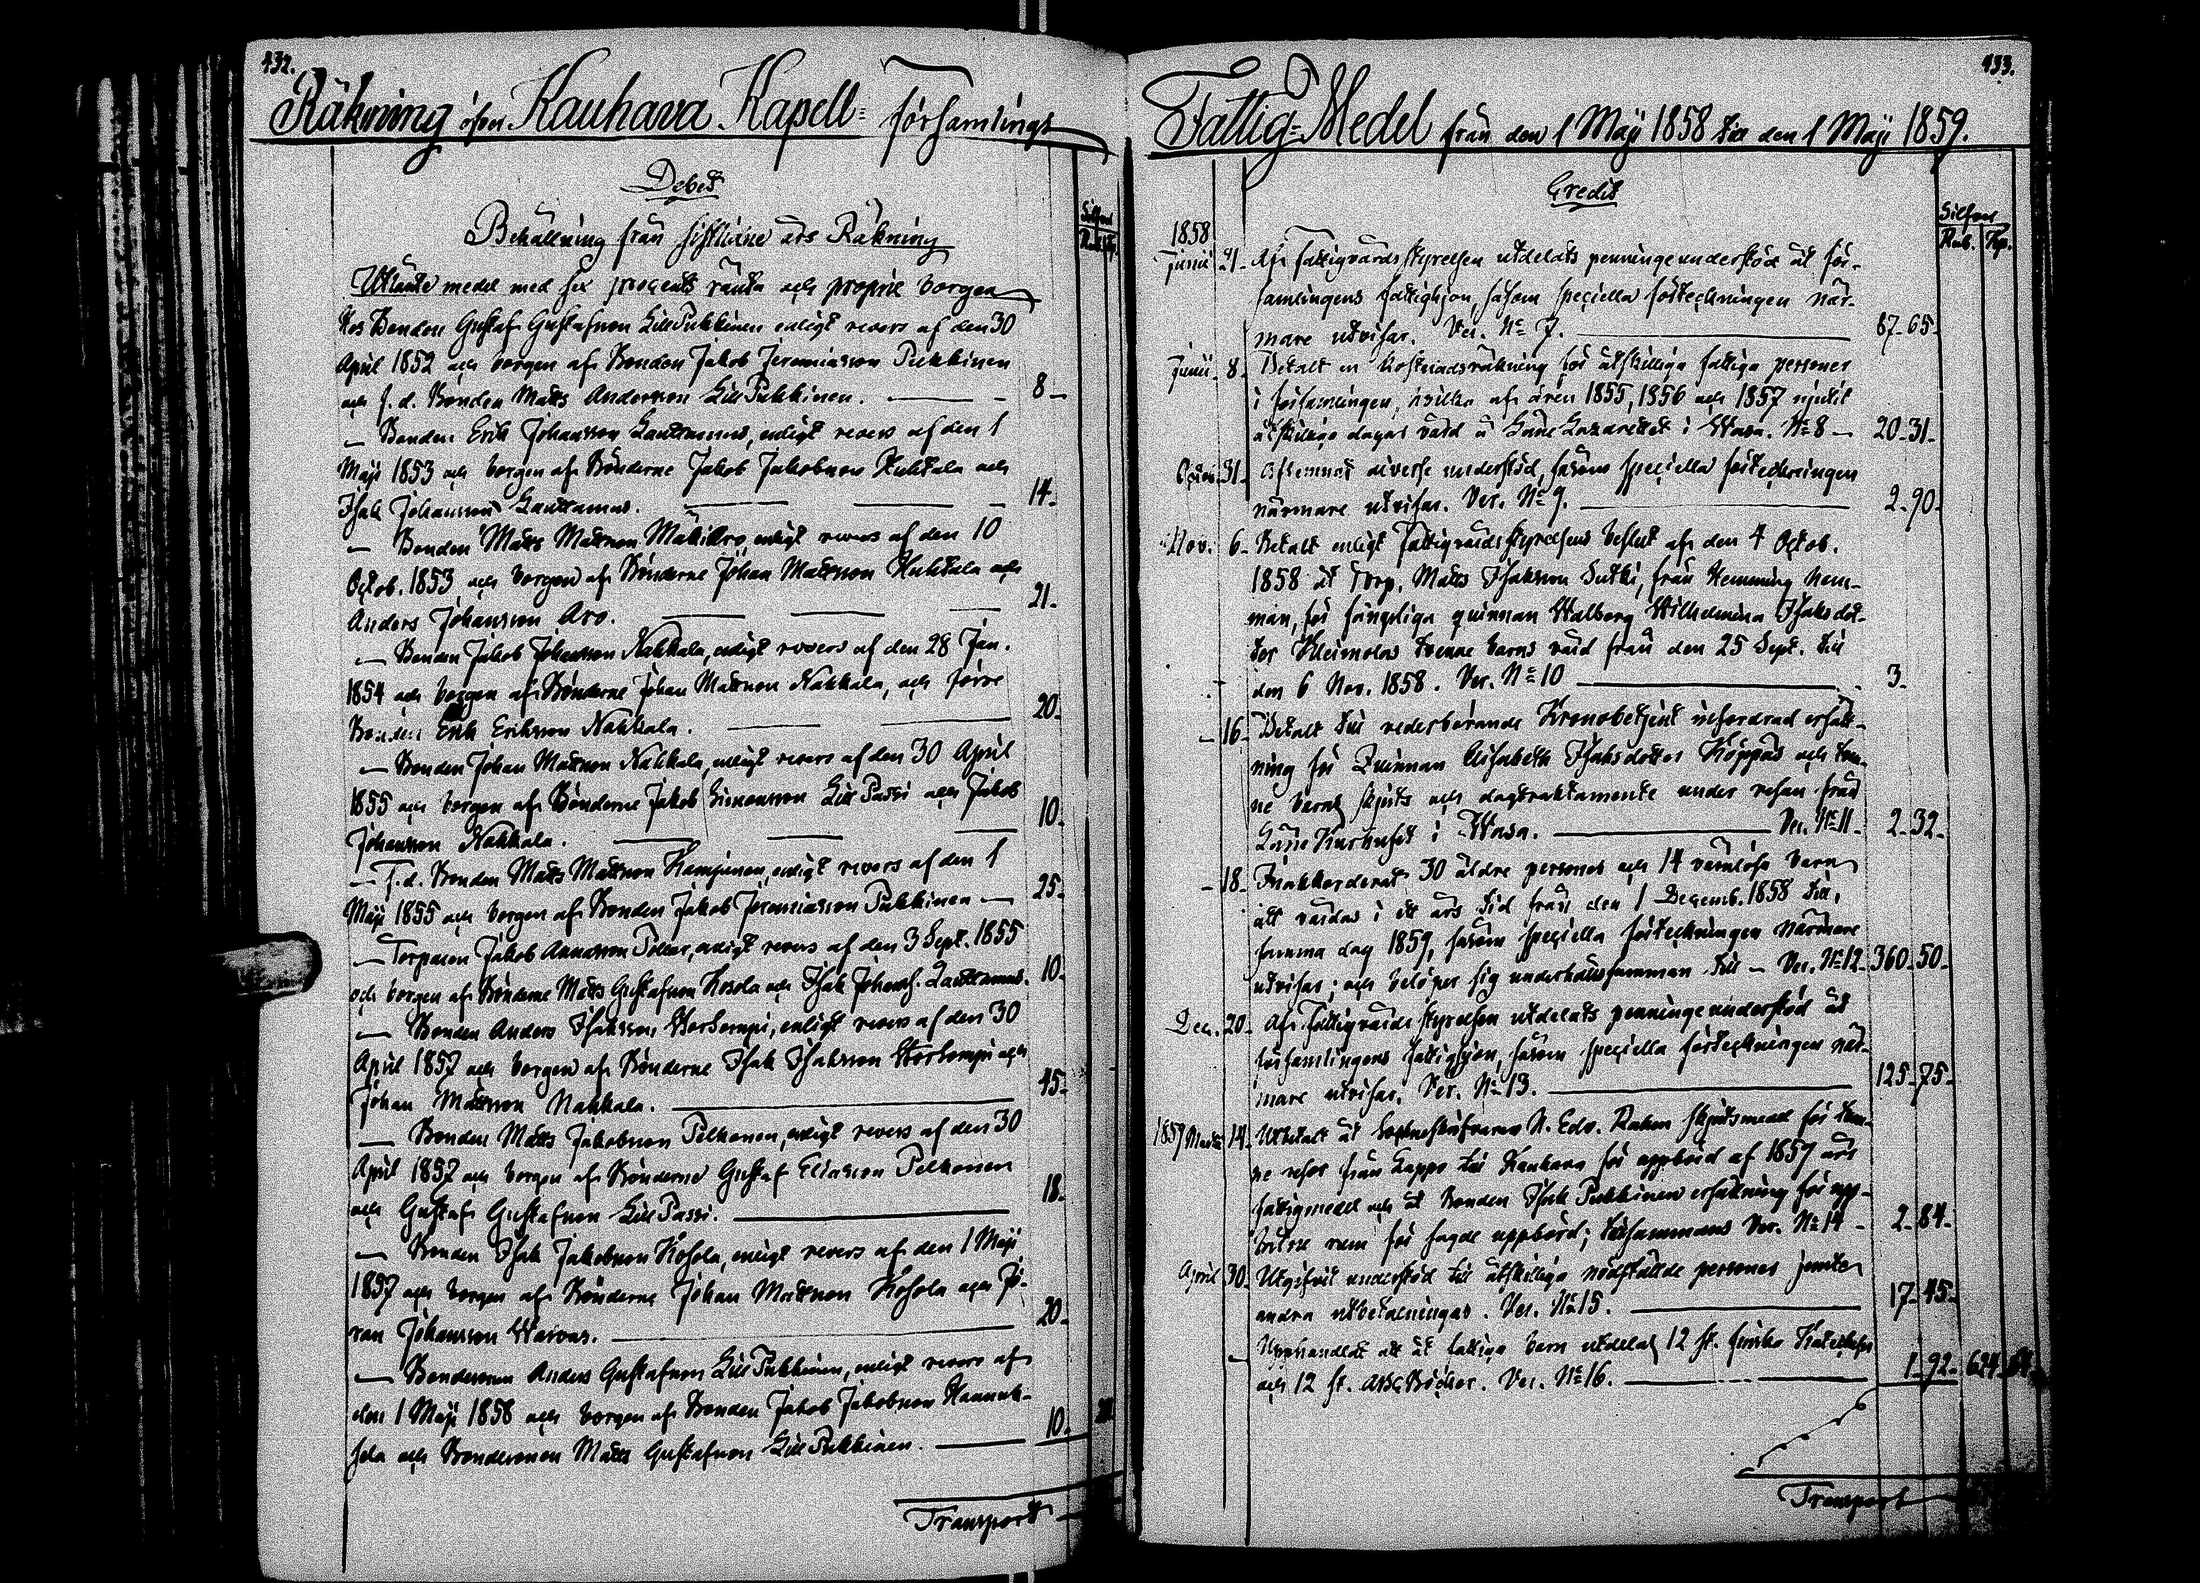 432.
Räkning öfver Kauhava Kapell-församlings
Debet
Silfver
Rub. Kp.
Behållning från sistlidne års Räkning
Utlånte medel med sex procents ränta och proprie borgen
Hos Bonden Gustaf Gustafsson Lill Pukkinen enligt revers af den 30
April 1852 och borgen af Bonden Jakob Jeremiasson Pukkinen
och f. d. Bonden Matts Andersson Lill Pukkinen. 8
— Bonden Erik Johansson Lauttamus, enligt revers af den 1
Maji 1853 och borgen af Bönderne Jakob Jakobsson Huhtala och
Isak Johansson Lauttamus. 14
— Bonden Matts Mattsson enligt revers af den 10
Octob. 1853, och borgen af Bönderne Johan Mattsson Huhtala och
Anders Johansson Aro. 21
— Bonden Jakob Johansson Nahkala, enligt revers af den 28 Jan.
1854 och borgen af Bönderne Johan Mattsson Nahkala, och förre
Bonden Erik Eriksson Nahkala. 20
— Bonden Johan Mattsson Nahkala, enligt revers af den 30 April
1855 och borgen af Bönderne Jakob Simonsson Lill Passi och Jakob
Johansson Nahkala. 10
— F. d. Bonden Matts Mattsson enligt revers af den 1
Maji 1855 och borgen af Bonden Jakob Jeremiasson Pukkinen — 25
— Torparen Jakob enligt revers af den 3 Sept. 1855
och borgen af Bönderne Matts Gustafsson Kosola och Isak Johanss. Lauttamus. 10
— Bonden Anders Isaksson enligt revers af den 30
April 1857 och borgen af Bönderne Isak Isaksson och
Johan Mattsson Nahkala. 45
— Bonden Matts Jakobsson Pelkonen, enligt revers af den 30
April 1857 och borgen af Bönderne Gustaf Eliasson Pelkonen
och Gustaf Gustafsson Lill Passi. 18
— Bonden Isak Jakobsson Kosola, enligt revers af den 1 Maji
1857 och borgen af Bönderne Johan Mattsson Kosola och Jo-
han Johansson 20
— Bondesonen Anders Gustafsson Lill Pukkinen, enligt revers af
den 1 Maji 1858 och borgen af Bonden Jakob Jakobsson Hannuk-
sela och Bondesonen Matts Gustafsson Lill Pukkinen. 10
Transport
433.
Fattig-Medel från den 1 Maji 1858 till den 1 Maji 1859.
Credit
Silfver
Rub. Kp.
1858
Junii 21 Af Fattigvårdsstyrelsen utdelats penningeunderstöd åt för-
samlingens fattighjon, såsom speciella förteckningen när-
mare utvisar. Ver. No 7. 87 65
Junii 8 Betalt en kostnadsräkning för åtskilliga fattiga personer
i församlingen, hvilka af åren 1855, 1856 och 1857 njutit
åtskillige dagars vård å Läne Lazarettet i Wasa. No 8 — 20 31
Octob. 31 diverse understöd, såsom speciella förteckningen
närmare utvisar. Ver. No 9. 2 90
Nov. 6 Betalt enligt Fattigvårdsstyrelsens beslut af den 4 Octob.
1858 åt Torp. Matts Isaksson från Hemming hem-
man, för fängsliga quinnan Walborg Wilhelmina Isaksdot-
ter tvenne barns vård från den 25 Sept. till
den 6 Nov. 1858. Ver. No 10 3
— 16 Betalt till vederbörande Kronobetjent infordrad ersätt-
ning för Quinnan Elisabeth Isaksdotter Köppäs och tven-
ne barns skjuts och dagtraktamente under resan från
Läne Kurhuset i Wasa. Ver. No 11 2 32
— 18 Inackorderat 30 äldre personer och 14 värnlösa barn
att vårdas i ett års tid från den 1 Decemb. 1858 till
samma dag 1859, såsom speciella förteckningen närmare
utvisar; och belöper sig underhållssumman till — Ver. No 12 360 50
Dec. 20 Af Fattigvårdsstyrelsen utdelats penningeunderstöd åt
församlingens fattighjon, såsom speciella förteckningen när-
mare utvisar. Ver. No 13. 125 75
1859 Martii 14 Utbetalt åt N. Edv. skjutsmedel för tven-
ne resor från Lappo till Kauhava för uppbörd af 1857 års
fattigmedel och åt Bonden Isak Pukkinen ersättning för upp-
båtne rum för sagde uppbörd; tillsammans Ver. No 14 — 2 84
April 30 Utgifvit understöd till åtskilliga nödstälde personer jemte
andra utbetalningar. Ver. No 15. 17 45
— Upphandlat att åt fattiga barn utdelas 12 st. finska Katekeser
och 12 st. ABC Böcker. Ver. No 16. 1 92 624 64
Transport